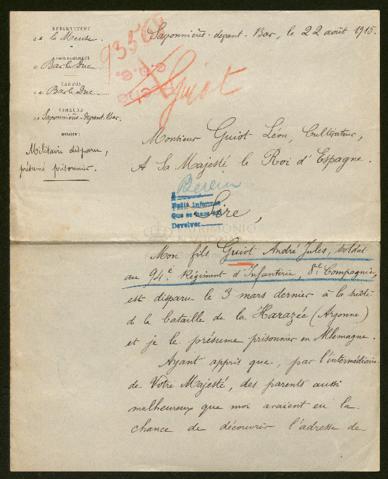 DÉPARTEMENT
de la Meuse.
ARRONDISSEMENT
de Bar-le-Duc
CANTON
de Bar-le-Duc.
COMMUNE
de Saponnières-devant-Bar.
Militaire disparu,
présumé prisonnier.
Guiot
Saponnières-devant-Bar, le 22 août 1915.
Monsieur Guiot Léon, Cultivateur,
A Sa Majesté le Roi d'Espagne.
Berlin
Devolver
Sire,
Mon fils Guiot André Jules, soldat
au 94e Régiment d'Infanterie, 8e Compagnie,
est disparu le 3 mars dernier à la suite
de la bataille de la Harazée (Argonne)
et je le présume prisonnier en Allemagne.
Ayant appris que, par l'intermédiaire
de Votre Majesté, des parents aussi
malheureux que moi avaient eu la
chance de découvrir l'adresse de